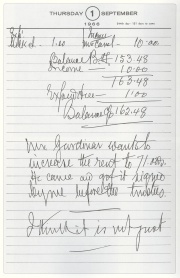 THURSDAY 1 SEPTEMBER
1.00 10.00
Balance Bott 153.48
Income 10.00
163.48
Expenditure 1.00
Balance 162.48
Mr Gardiner wants to
increase the rent to 11.00.
He came and got it signed
before the trustees.
I think it is not just